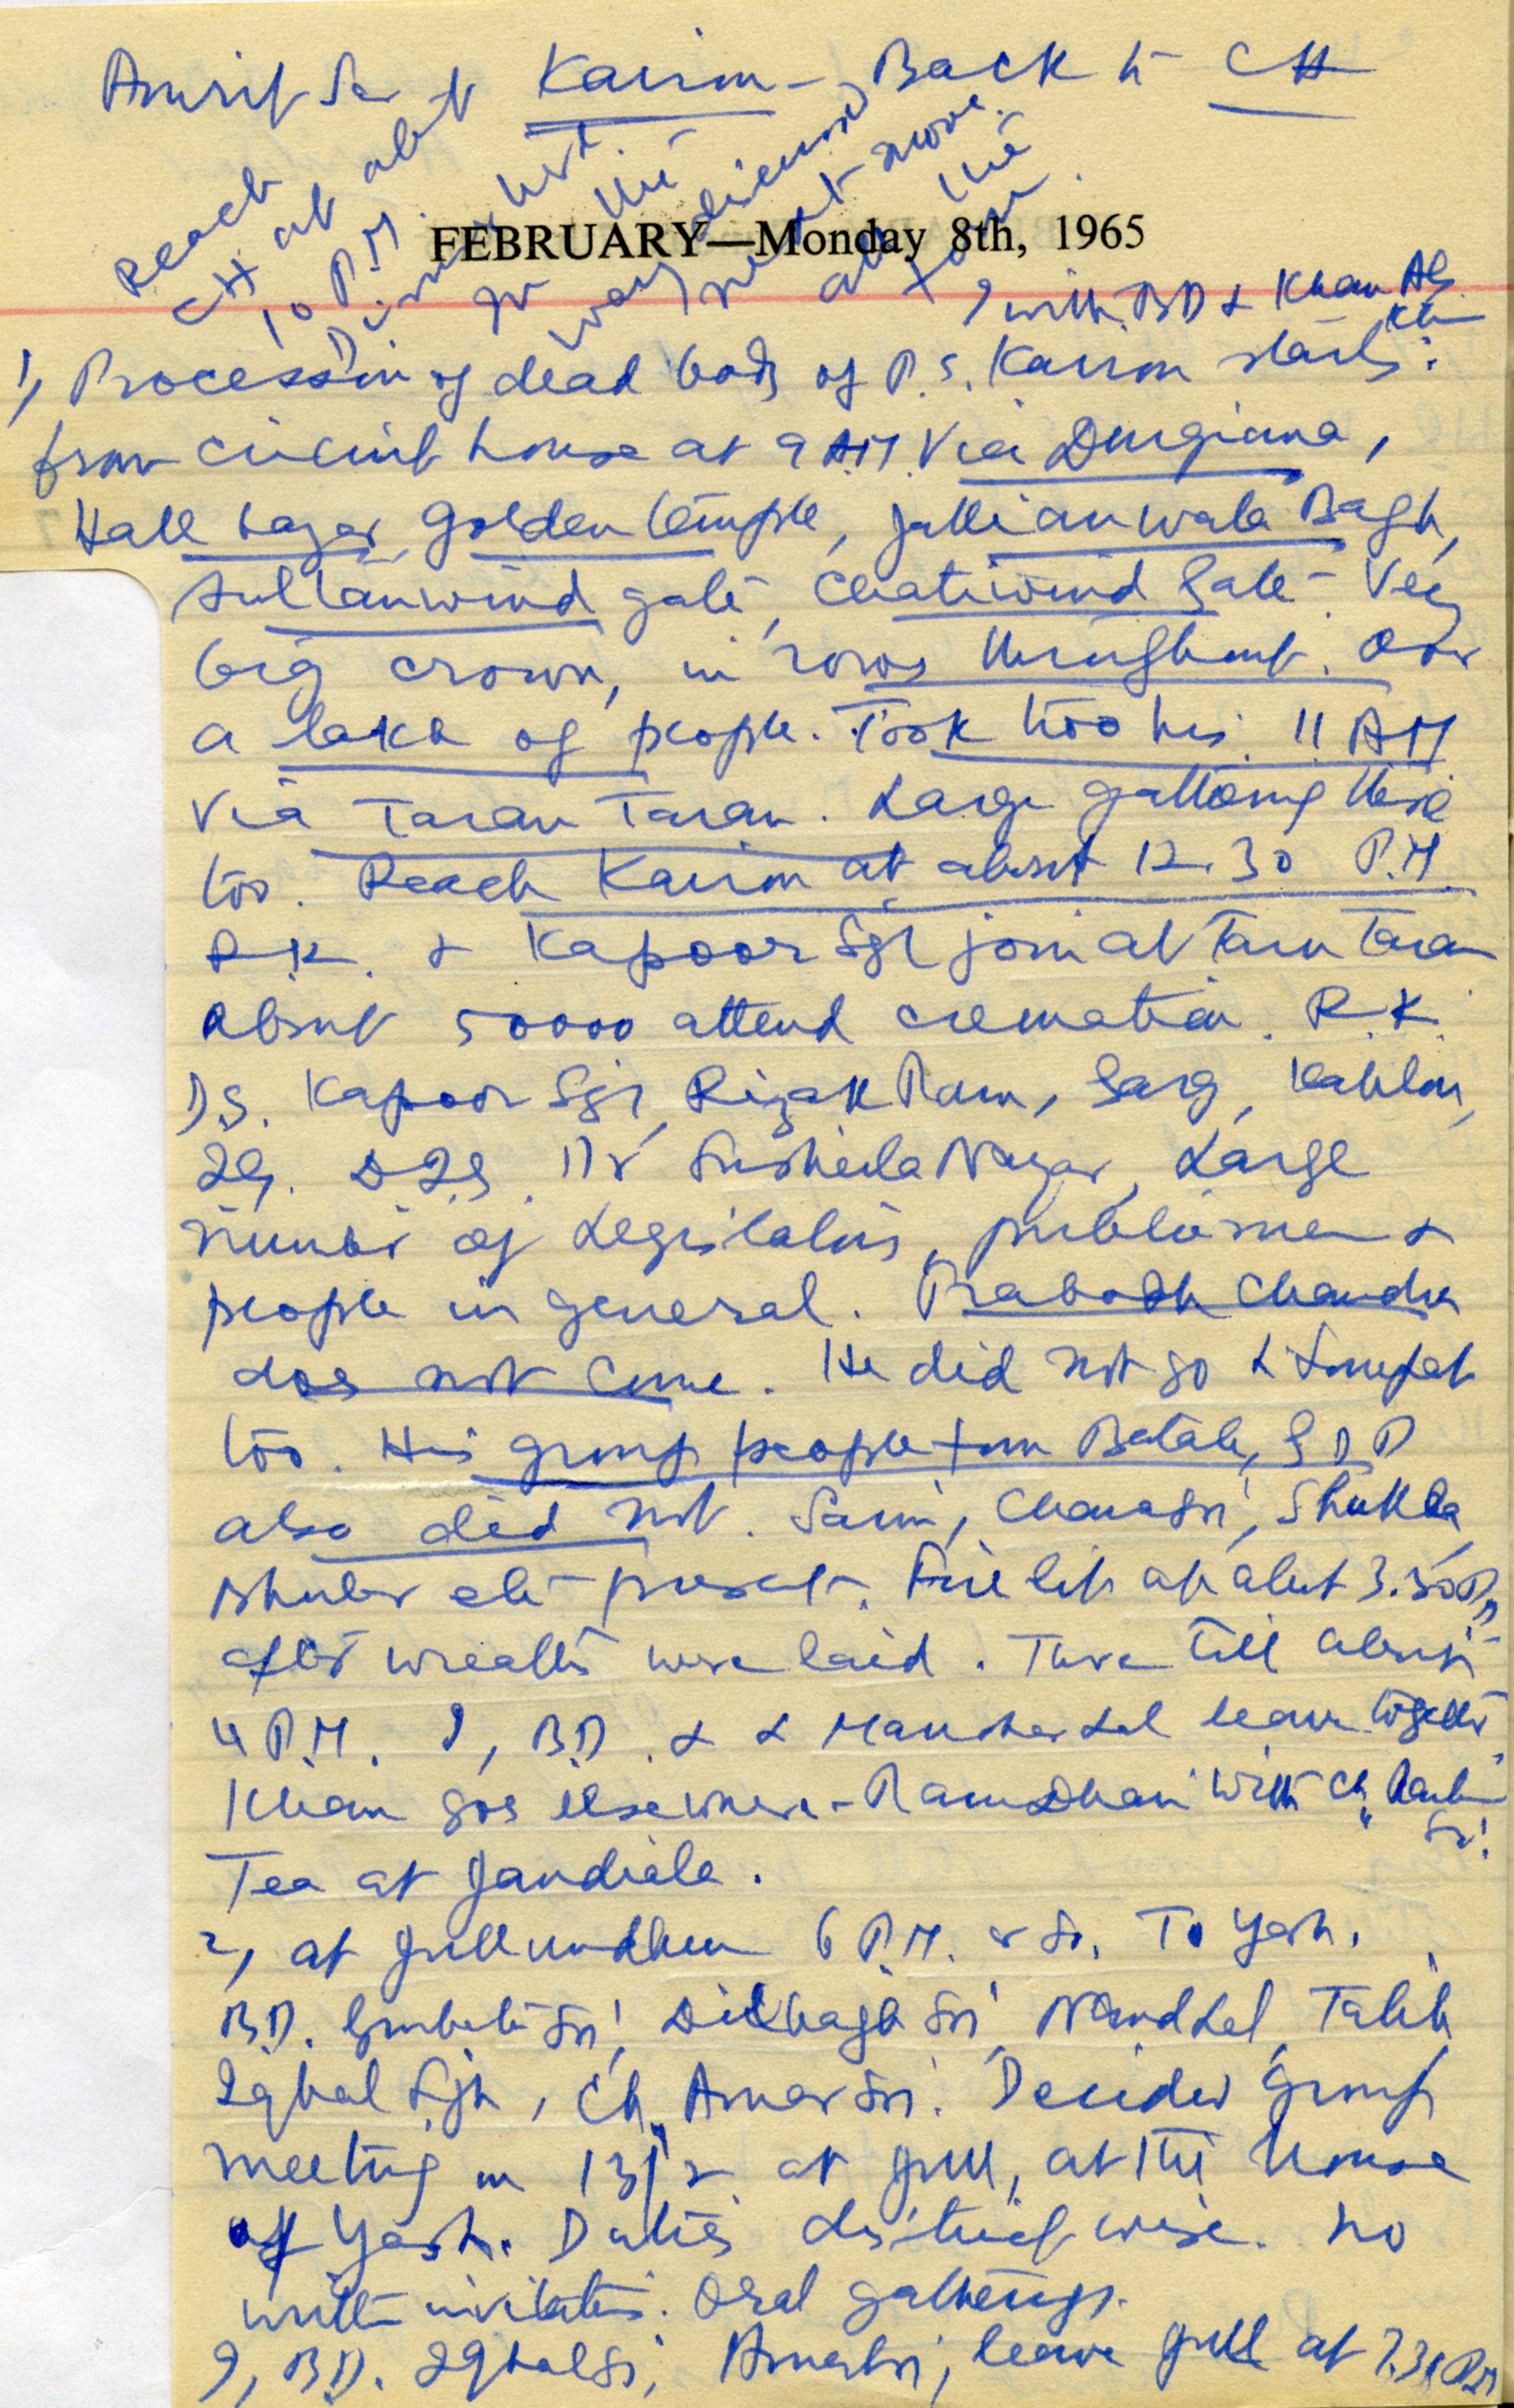 Amritsar Kairon - Back to CH
Reach
CH at abt
10 P.M.
the
way discussed
next move.
all the
FEBRUARY—Monday 8th, 1965
I with BD & Khan Ab.
1, Procession of dead body of P.S. Kairon starts
from circuit house at 9 AM. Via Durgiana,
Hall bazar, Golden temple, Jallianwala Bagh,
Sultanwind gate, Chatiwind Gate - Very
big crown, in rows throughout. Over
a lakh of people. Took two hrs. 11 AM
Via Taran Taran. Large gathering there
too. Reach Kairon at about 12.30 P.M.
R.K. & Kapoor Sgh join at Tarn Taran
About 50000 attend cremation. R.K.
D.S. Kapoor Sgh, Rizak Ram, Garg, Kahlon,
IG. DIG. Dr Susheila Nayar, Large
number of Legislators, publicmen &
people in general. Prabodh Chandra
does not come. He did not go to Sonepat
too. His group people from Batala, GDP
also did not. Saini, Chanan Si, Shukla,
etc present. Fire lit at abut 3.30 PM
after wreaths were laid. There till about
4 P.M. I, B.D. & & Manohar Lal leave together
Khan goes elsewhere - Ram Dhari with Ch. Ranbir
Si.
Tea at Jandiala.
2, at Jullundhur 6 P.M. or so. To Yash.
B.D. Gurbate Si, Dilbagh Si, Nand Lal, Talib,
Iqbal Sgh, Ch. Amar Si. Decided group
meeting on 13/2 at Jull, at the house
of Yash. Duties district wise. No
written invitation. Oral gatherings.
I, B.D. Iqbal Si, Amar Si, leave Jull at 7.30 PM